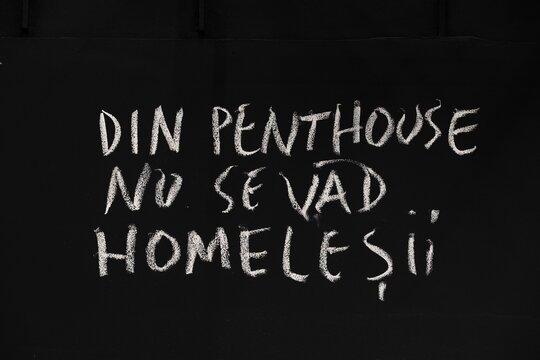 DIN PENTHOUSE
NU SE VĂD
HOMELEȘII